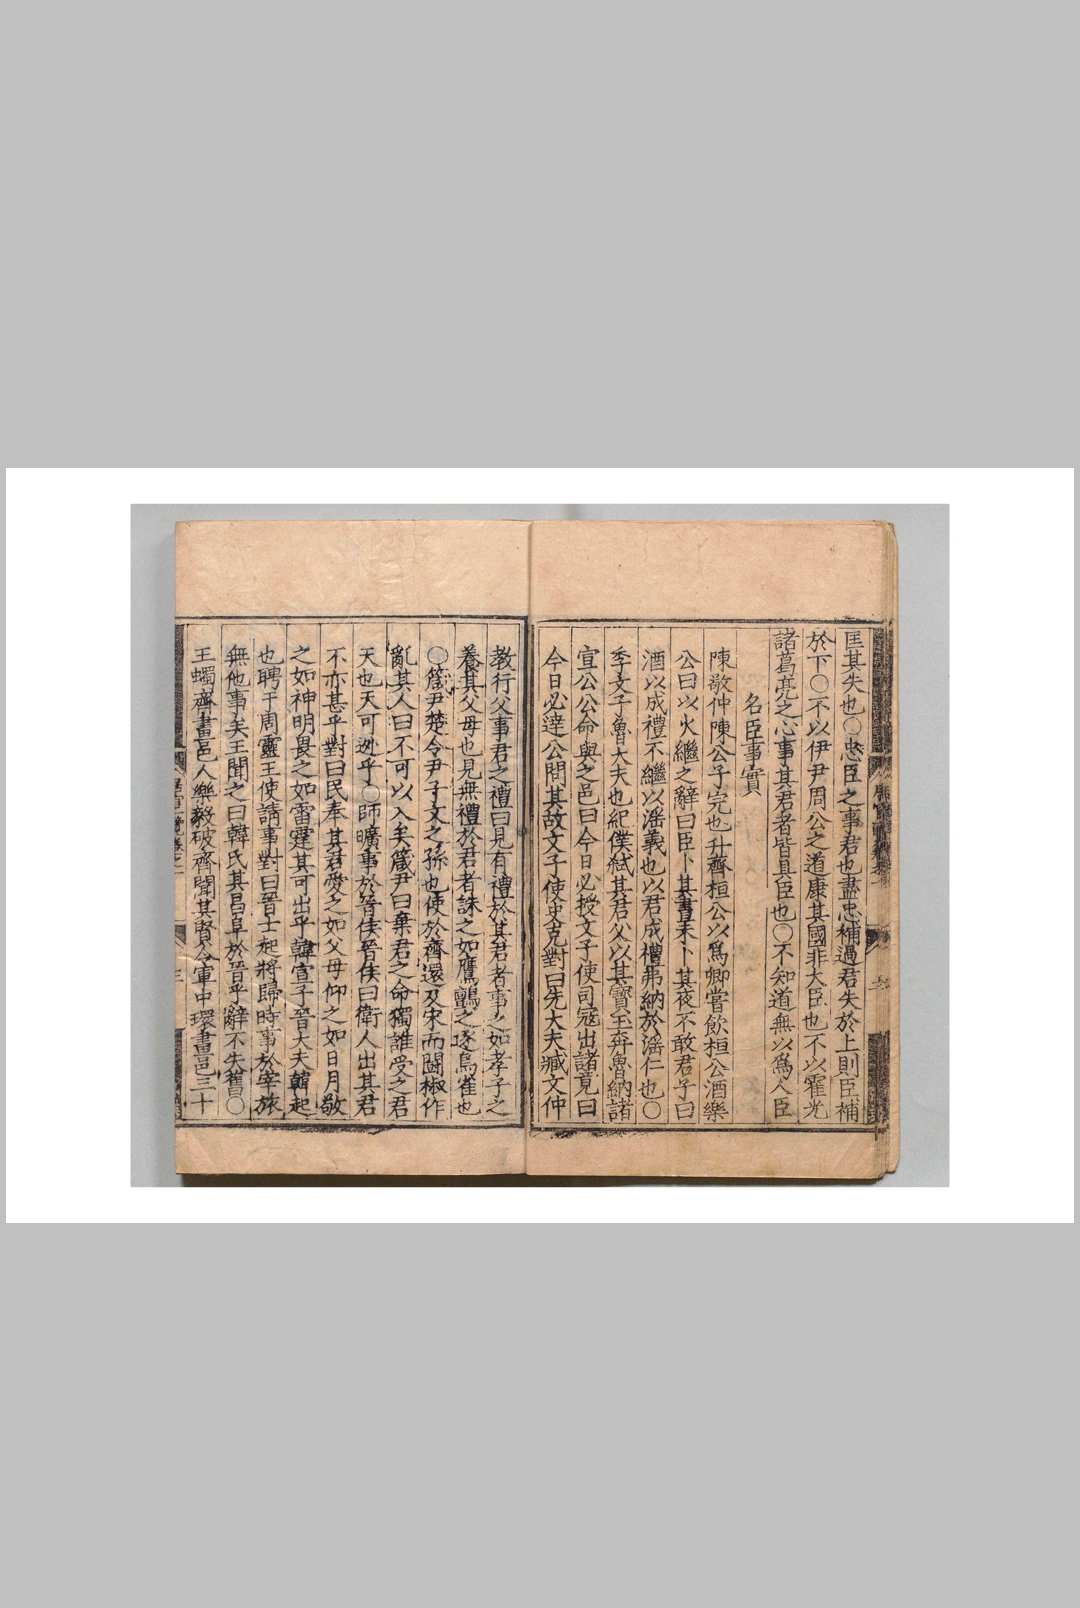 匡其失也○忠臣之事君也盡忠補過君失於上則臣補
於下○不以伊尹周公之道康其國非大臣也不以霍光
諸葛亮之心事其君者皆具臣也○不知道無以爲人臣
名臣事實
陳敬仲陳公子完也升齊桓公以爲卿嘗飮桓公酒樂
公曰以火繼之辭曰臣卜其晝未卜其夜不敢君子曰
酒以成禮不繼以淫義也以君成禮弗納於淫仁也○
季文子魯大夫也紀僕弑其君父以其寶玉奔魯納諸
宣公公命與之邑曰今日必授文子使司寇出諸竟曰
今日必達公問其故文子使史克對曰先大夫臧文仲
教行父事君之禮曰見有禮於其君者事之如孝子之
養其父母也見無禮於君者誅之如鷹鸇之逐鳥雀也
○箴尹楚令尹子文之孫也使於齊還及宋而聞椒作
亂其人曰不可以入矣箴尹曰棄君之命獨誰受之君
天也天可逃乎○師曠事於晉侯晉侯曰衛人出其君
不亦甚乎對曰民奉其君愛之如父母仰之如日月敬
之如神明畏之如雷霆其可出乎韓宣子晉大夫韓起
也聘于周靈王使請事對曰晉士起將歸時事於宰旅
無他事矣王聞之曰韓氏其昌阜於晉乎辭不失舊○
王蠋齊畫邑人樂毅破齊聞其賢令軍中環畫邑三十